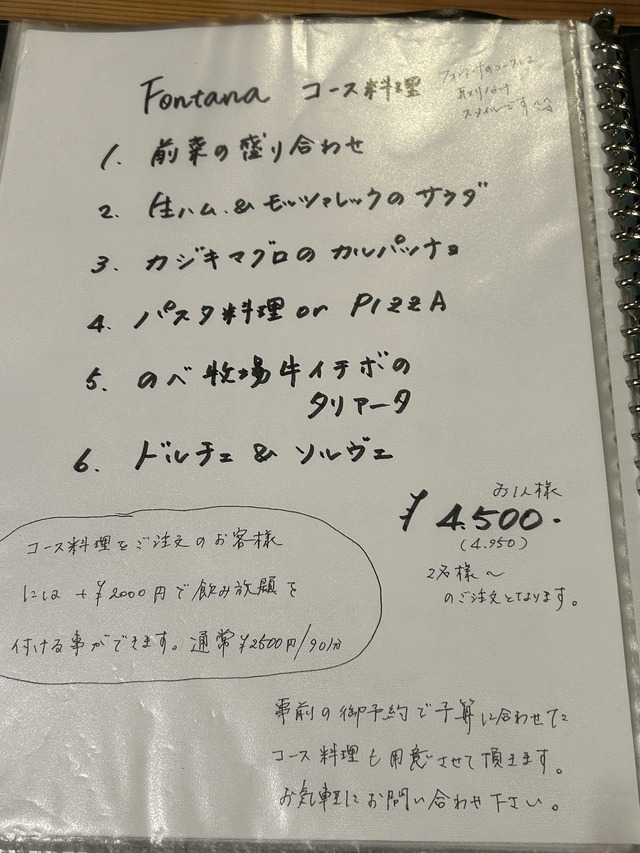 Fontana コース料理
フォンターナのコースは
取り分け
スタイルです
1. 前菜の盛り合わせ
2. 生ハム&モッツァレッラのサラダ
3. カジキマグロのカルパッチョ
4. パスタ料理 or PIZZA
5. のべ牧場牛イチボの
タリアータ
6. ドルチェ & ソルヴェ
お1人様
¥4.500.
(4.950)
2名様〜
のご注文となります。
コース料理をご注文のお客様
には +¥2000円で飲み放題を
付ける事ができます。通常¥2500円/90分
事前の御予約で予算に合わせた
コース料理も用意させて頂きます。
お気軽にお問い合わせ下さい。